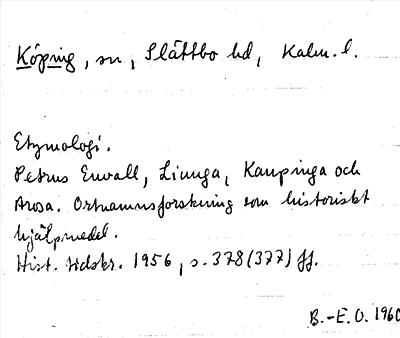 Köping, sn, Slättbo hd, Kalm. l.
Etymologi.
Petrus Envall, Liunga, Kaupinga och
Arosa. Ortnamnsforskning som historiskt
hjälpmedel.
Hist. tidskr. 1956, s. 378 (377) ff.
B.-E. O. 1960